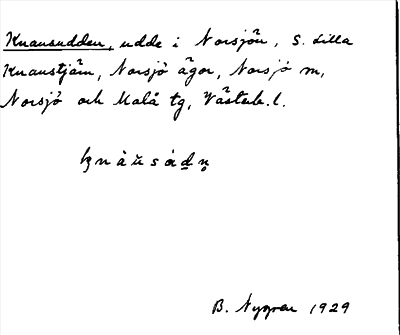 Knausudden, udde i Norsjön, S. Lilla
Knaustjärn, Norsjö ägor, Norsjö sn,
Norsjö och Malå tg, Västerb. l.
B. Nygren 1929